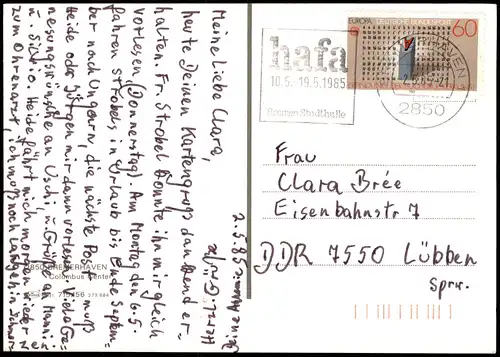 Meine liebe Clara,
heute Deinen Kartengruß dankend er-
halten. Fr. Strobel konnte ihn mir gleich
vorlesen (Donnerstag). Am Montag den 6.5.
fahren Strobels in Urlaub bis Ende Septem-
ber nach Ungarn, die nächste Post muß
Heide oder Jürgen mir dann vorlesen. Viel Ge-
nesungswünsche an Uschi u. Grüße an Hanni
u. Heide fährt mich morgen wieder
zum Ohrenarzt, ich muß noch in
Herzl. Grüße
Deine
2.5.85
2850 BREMERHAVEN
Columbus Center
EUROPA DEUTSCHE BUNDESPOST
60
hafa
10.5.-19.5.1985
Bremer Stadthalle
2850
Frau
Clara Brée
Eisenbahnstr 7
DDR 7550 Lübben
Sprw.